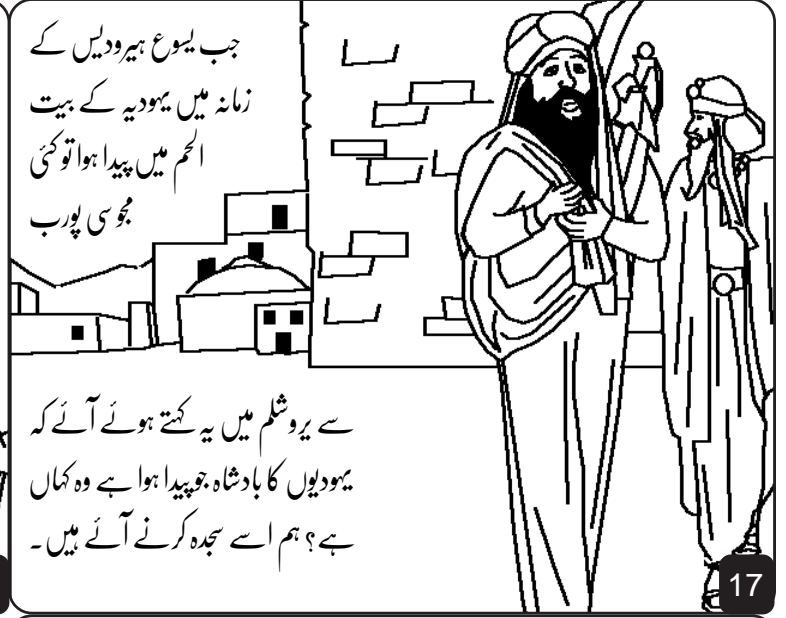 جب یسوع ہیرودیس کے
زمانہ میں یہودیہ کے بیت
الحم میں پیدا ہوا تو کئی
مجوسی پورب
سے یروشلم میں یہ کہتے ہوئے آئے کہ
یہودیوں کا بادشاہ جو پیدا ہوا ہے وہ کہاں
ہے؟ ہم اسے سجدہ کرنے آئے ہیں۔
17